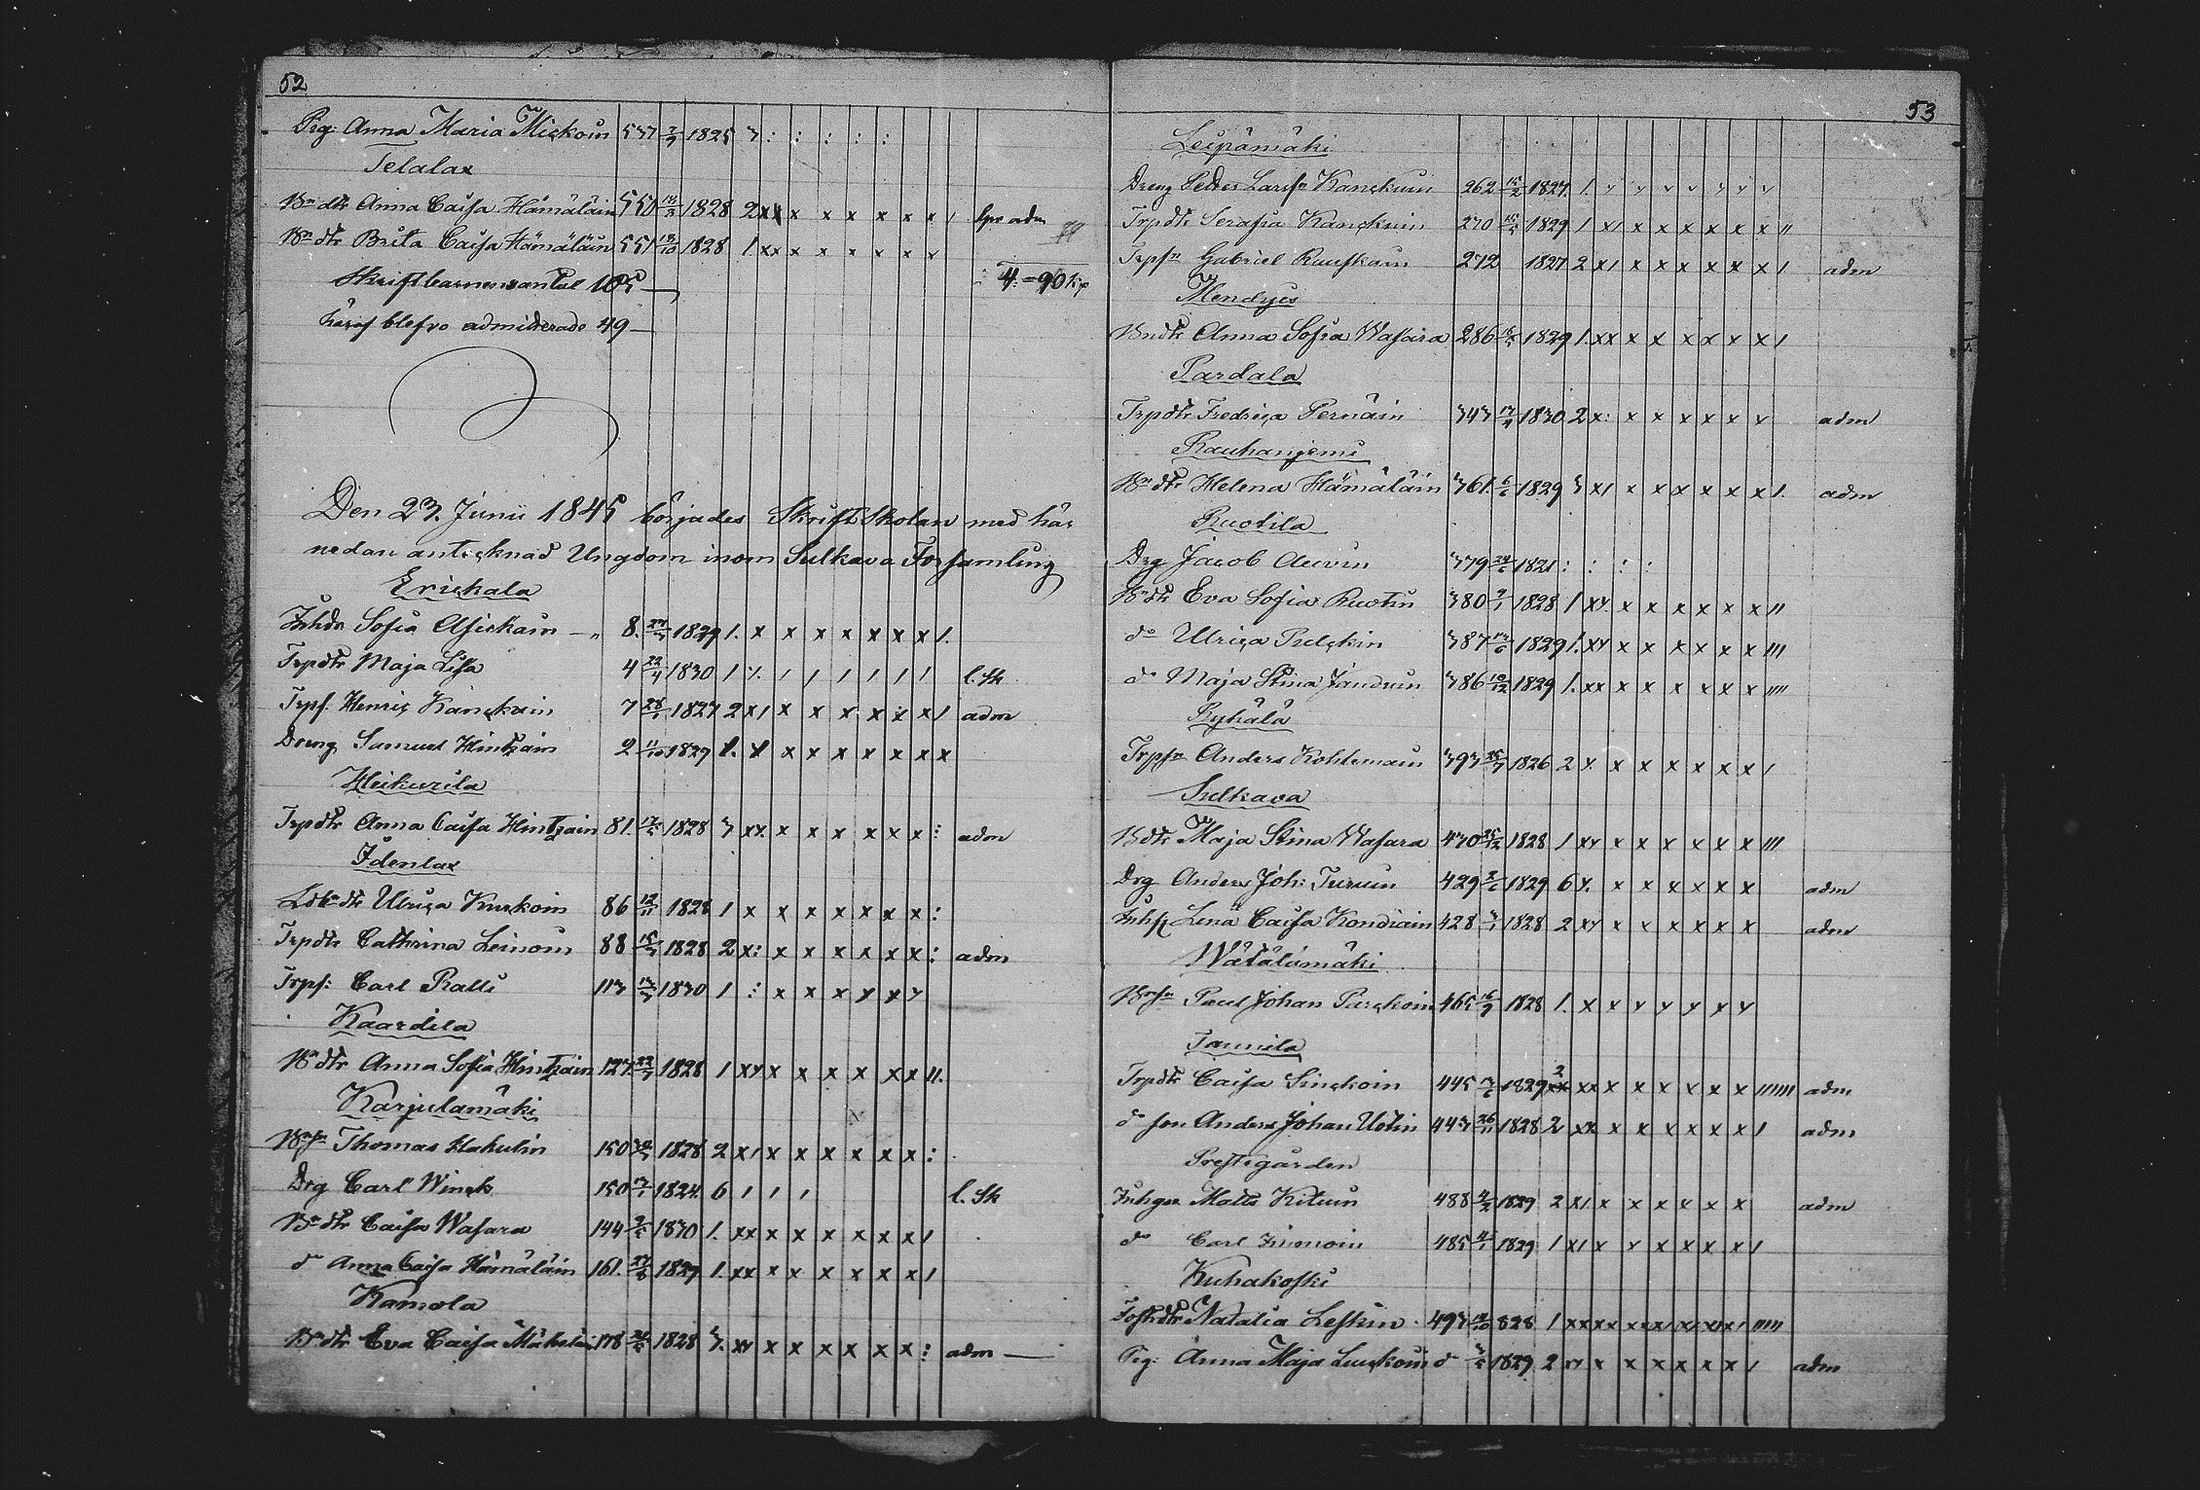 52
Pig: Anna Maria Mickoin 537 7/9 1825 3 : : : : :
Telalax
Bn dtr Anna Caisa Hämäläin 550 1828 2 xx x x x x x x / adm
Bn dtr Brita Caisa Hämäläin 551 18/10 1828 1 xx x x x x x x
Skriftbarnens antal 105
häraf blefvo admitterade 49
4 = 90
Den 23. Junii 1845 börjades SkriftSkolan med här
nedan antecknad Ungdom inom Sulkava Församling
Erickala
Inhdr Sofia Asickain 8. 1829 1. x x x x x x x 1.
Trpdtr Maja Lisa 4 22/4 1830 1 / / / / / / / l. Sk
Trps. Henric Kanckain 7 1827 2 x/ x x x x x x / adm
Dreng Samuel Hintzain 2 11/10 1827 x x x x x x x
Heikurila
Trpdtr Anna Caisa Hintzain 81. 1828 3 xx. x x x x x x : adm
Idenlax
dtr Ulrica Kuckoin 86 12/11 1828 1 x x x x x x x :
Trpdtr Cathrina Leinoin 88 1828 2 x: x x x x x x : adm
Trps: Carl Ralli 113 1830 1 : x x x x x x
Kaardila
Bn dtr Anna Sofia Hintzain 127 1828 1 xx x x x x x x //.
Karjulamäki
Bnsn Thomas Hakulin 150 1828 2 x/ x x x x x x :
Drg Carl Winck 150 1824 6 / / / l. Sk
Bn dtr Caisa Wasara 144 1830 1. xx x x x x x x /
do Anna Caisa Hämäläin 161. 1829 1. xx x x x x x x /
Kamola
Bn dtr Eva Caisa 178 1828 3. xx x x x x x x : adm
53
Leipämäki
Dreng Petter Larsson Kanckuin 262 15/2 1827. 1. x x x x x x x
Trpdtr Serafia Kanckuin 270 1829 1 x/ x x x x x x //
Trpsn Gabriel Rauskain 272 1827 2 x/ x x x x x x / adm
Mendyes
Bndtr Anna Sofia Wasara 286 1829 1. xx x x x x x x /
Pardala
Trpdtr Fredrica Pernäin 343 1830 2 x: x x x x x x adm
Rauhanjemi
Bn dtr Helena Hämäläin 361. 6/6 1829 3 x/ x x x x x x 1. adm
Ruotila
Drg Jacob 379 24/6 1821 : : : :
Bn dtr Eva Sofia Ruotin 380 7/1 1828 1 xx. x x x x x x //
do Ulrica Pulckin 387 1829 1. xx x x x x x x ///
do Maja Stina Jändrin 386 10/12 1829 1. xx x x x x x x ////
Ryhälä
Trpsn Anders Kohlemain 393 1826 2 x. x x x x x x /
Sulkava
Bdtr Maja Stina Wasara 430 25/12 1828 1 xx x x x x x x ///
Drg Anders Joh: Turuin 429 2/6 1829 6 x. x x x x x x adm
Lena Caisa Kondiain 428 1828 2 xx x x x x x x adm
Wätälämäki
Bnsn Paul Johan Parckoin 465 16/9 1828 1. x x x x x x x
Taunila
Trpdtr Caisa Sinckoin 445 1829 2 xx x x x x x x ////// adm
do son Anders Johan Uotin 443 26/11 1828 2 xx x x x x x x / adm
Prestegården
Inhgse Matts Kituin 488 1829 2 x/ x x x x x x adm
do Carl 485 1829 1 x/ x x x x x x /
Kuhakoski
Fostdtr Natalia Leskin 493 828 1 ////
Pig: Anna Maja Luuckoin do 1829 2 x x x x x x / adm